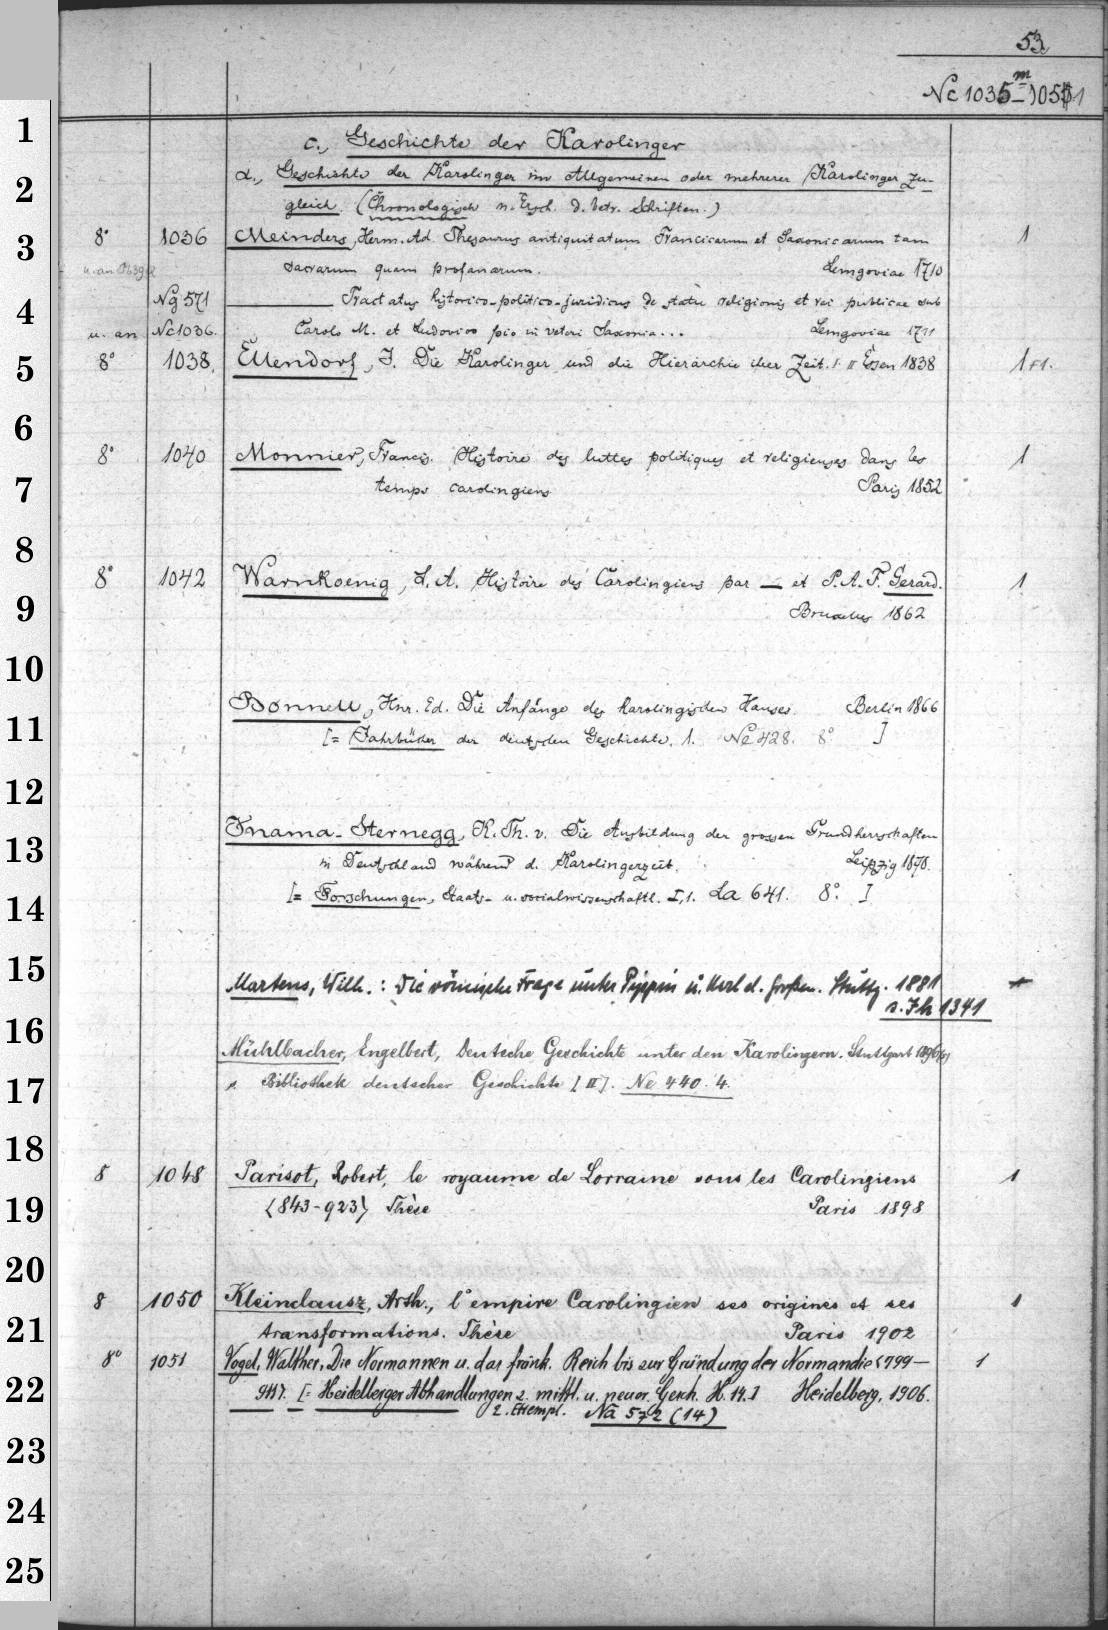 53
Nc 1035m–1051
c., Geschichte der Karolinger
α., Geschichte der Karolinger im Allgemeinen oder mehrerer Karolinger zu-
gleich. (Chronologisch n. Ersch. d. betr. Schriften.)
8° 1036 Meinders, Herm. Ad. Thesaurus antiquitatum Francicarum et Saxonicarum tam 1
sacrarum quam profanarum. Lemgoviae 1710
Ng 571 ——— Tractatus historico-politico-juridicus de statu religionis et rei publicae sub
u. an Nc 1036. Carolo M. et Ludovico pio in veteri Saxonia... Lemgoviae 1711
8° 1038. Ellendorf, J. Die Karolinger und die Hierarchie ihrer Zeit. I. II Essen 1838 1+1.
8° 1040 Monnier, Francis. Histoire des luttes politiques et religieuses dans les 1
temps carolingiens Paris 1852
8° 1042 Warnkoenig, L. A. Histoire des Carolingiens par — et P. A. F. Gerard. 1
Bruxelles 1862
Bonnell, Hnr. Ed. Die Anfänge des karolingischen Hauses. Berlin 1866
[= Jahrbücher der deutschen Geschichte. 1. Nc 428. 8° ]
Inama-Sternegg, K. Th. v. Die Ausbildung der grossen Grundherrschaften
in Deutschland während d. Karolingerzeit. Leipzig 1878.
[= Forschungen, Staats- u. socialwissenschaftl. I, 1. La 641. 8°. ]
Martens, Wilh.: Die römische Frage unter Pippin u. Karl d. Großen. Stuttg. 1881
s. Ih 1341
Mühlbacher, Engelbert, Deutsche Geschichte unter den Karolingern. Stuttgart
s. Bibliothek deutscher Geschichte [II]. Ne 440. 4.
8 1048 Parisot, Robert, le royaume de Lorraine sous les Carolingiens 1
<843-923> Thèse Paris 1898
8 1050 Kleinclausz, Arth., l'empire Carolingien ses origines et ses 1
transformations. Thèse Paris 1902
8° 1051 Vogel, Walther, Die Normannen u. das fränk. Reich bis zur Gründung der Normandie <799— 1
911>. [= Heidelberger Abhandlungen z. mittl. u. neuer Gesch. H. 14.] Heidelberg, 1906.
2. Exempl. Na 572 (14)
1
2
3
4
5
6
7
8
9
10
11
12
13
14
15
16
17
18
19
20
21
22
23
24
25